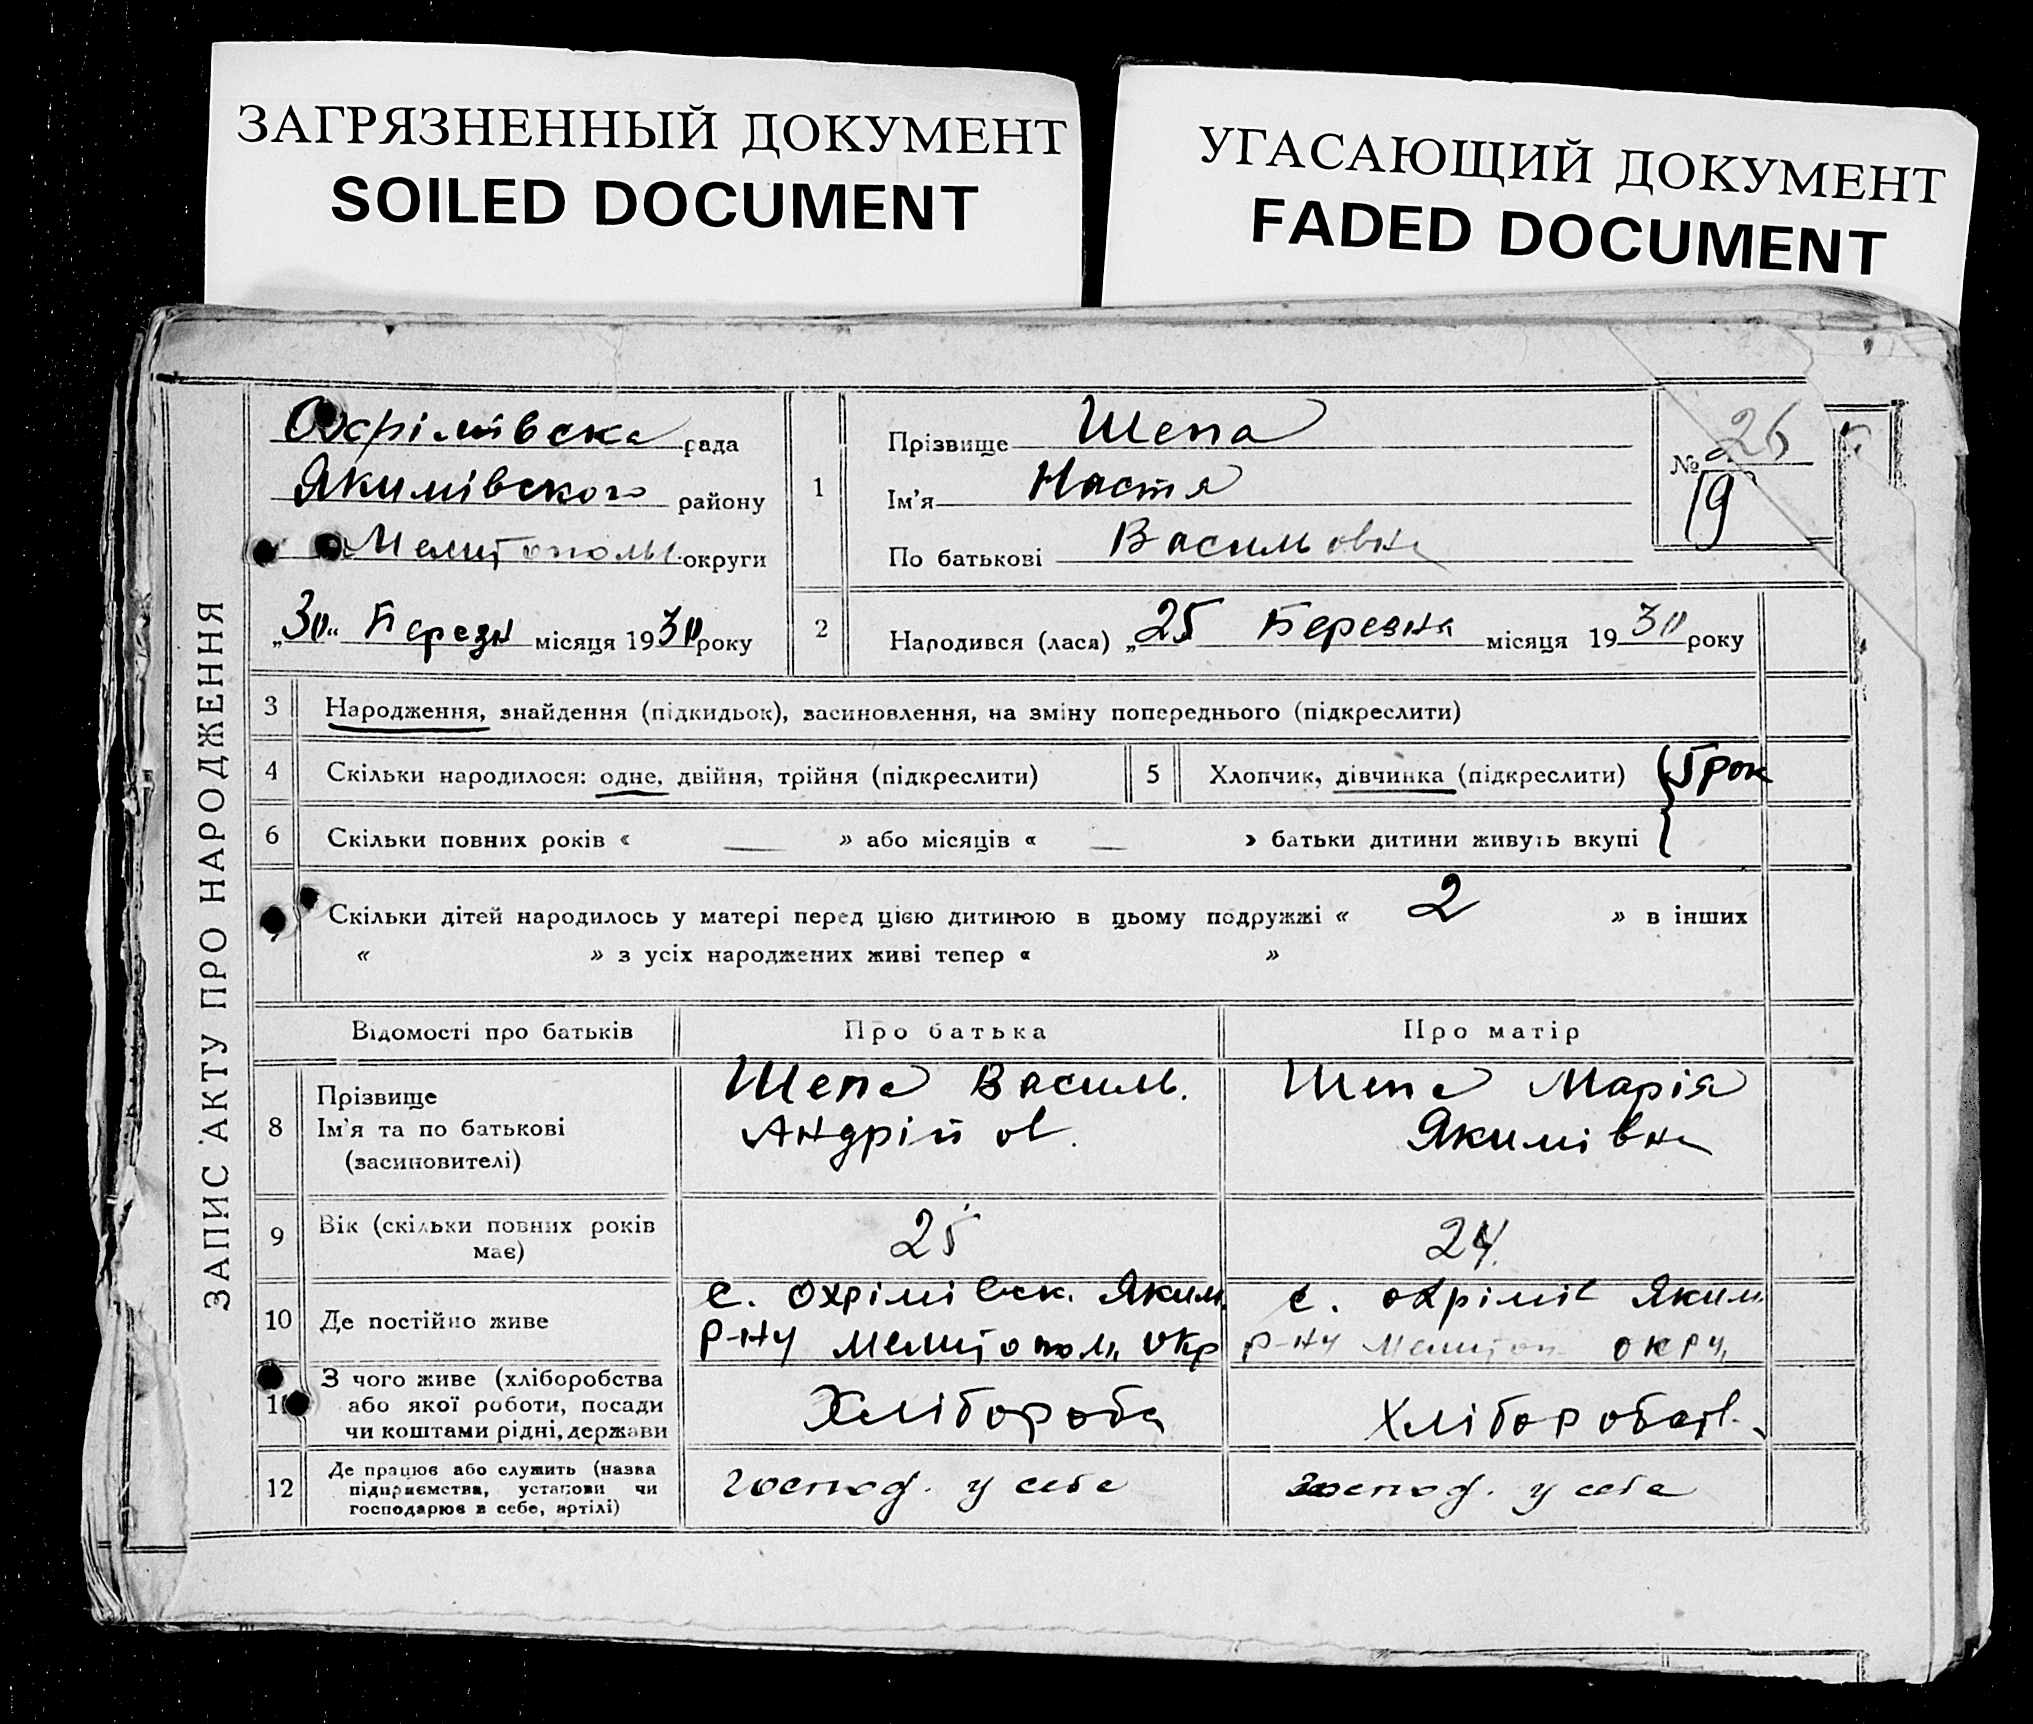 ЗАГРЯЗНЕННЫЙ ДОКУМЕНТ
SOILED DOCUMENT
УГАСАЮЩИЙ ДОКУМЕНТ
FADED DOCUMENT
ЗАПИС АКТУ ПРО НАРОДЖЕННЯ
Охрімівска рада
Якимівского району
Мелитополь округи
„30“ Березн місяця 1930 року
1
Прізвище Шепа
Ім'я Настя
По батькові Васильовна
№ 26
19
2
Народився (лася) „25 Березня місяця 1930 року
3 Народження, знайдення (підкидьок), засиновлення, на зміну попереднього (підкреслити)
4 Скільки народилося: одне, двійня, трійня (підкреслити)
5 Хлопчик, дівчинка (підкреслити)
5 рок
6 Скільки повних років « — » або місяців « — » батьки дитини живуть вкупі
Скільки дітей народилось у матері перед цією дитиною в цьому подружжі « 2 » в інших
« » з усіх народжених живі тепер « »
Відомості про батьків Про батька Про матір
8 Прізвище
Ім'я та по батькові
(засиновителі)
Шепа Василь.
Андрійов.
Шепа Марія
Якимівна
9 Вік (скільки повних років
має)
25
24.
10 Де постійно живе
с. Охрімівск. Яким.
Р-ну Мелитополь Окр
с. Охрімів Яким.
Р-ну Мелитоп округ
11 З чого живе (хліборобства
або якої роботи, посади
чи коштами рідні, держави
Хлібороба
Хліборобств.
12 Де працює або служить (назва
підприємства, установи чи
господарює в себе, артілі)
господ. у себе
господ. у себе